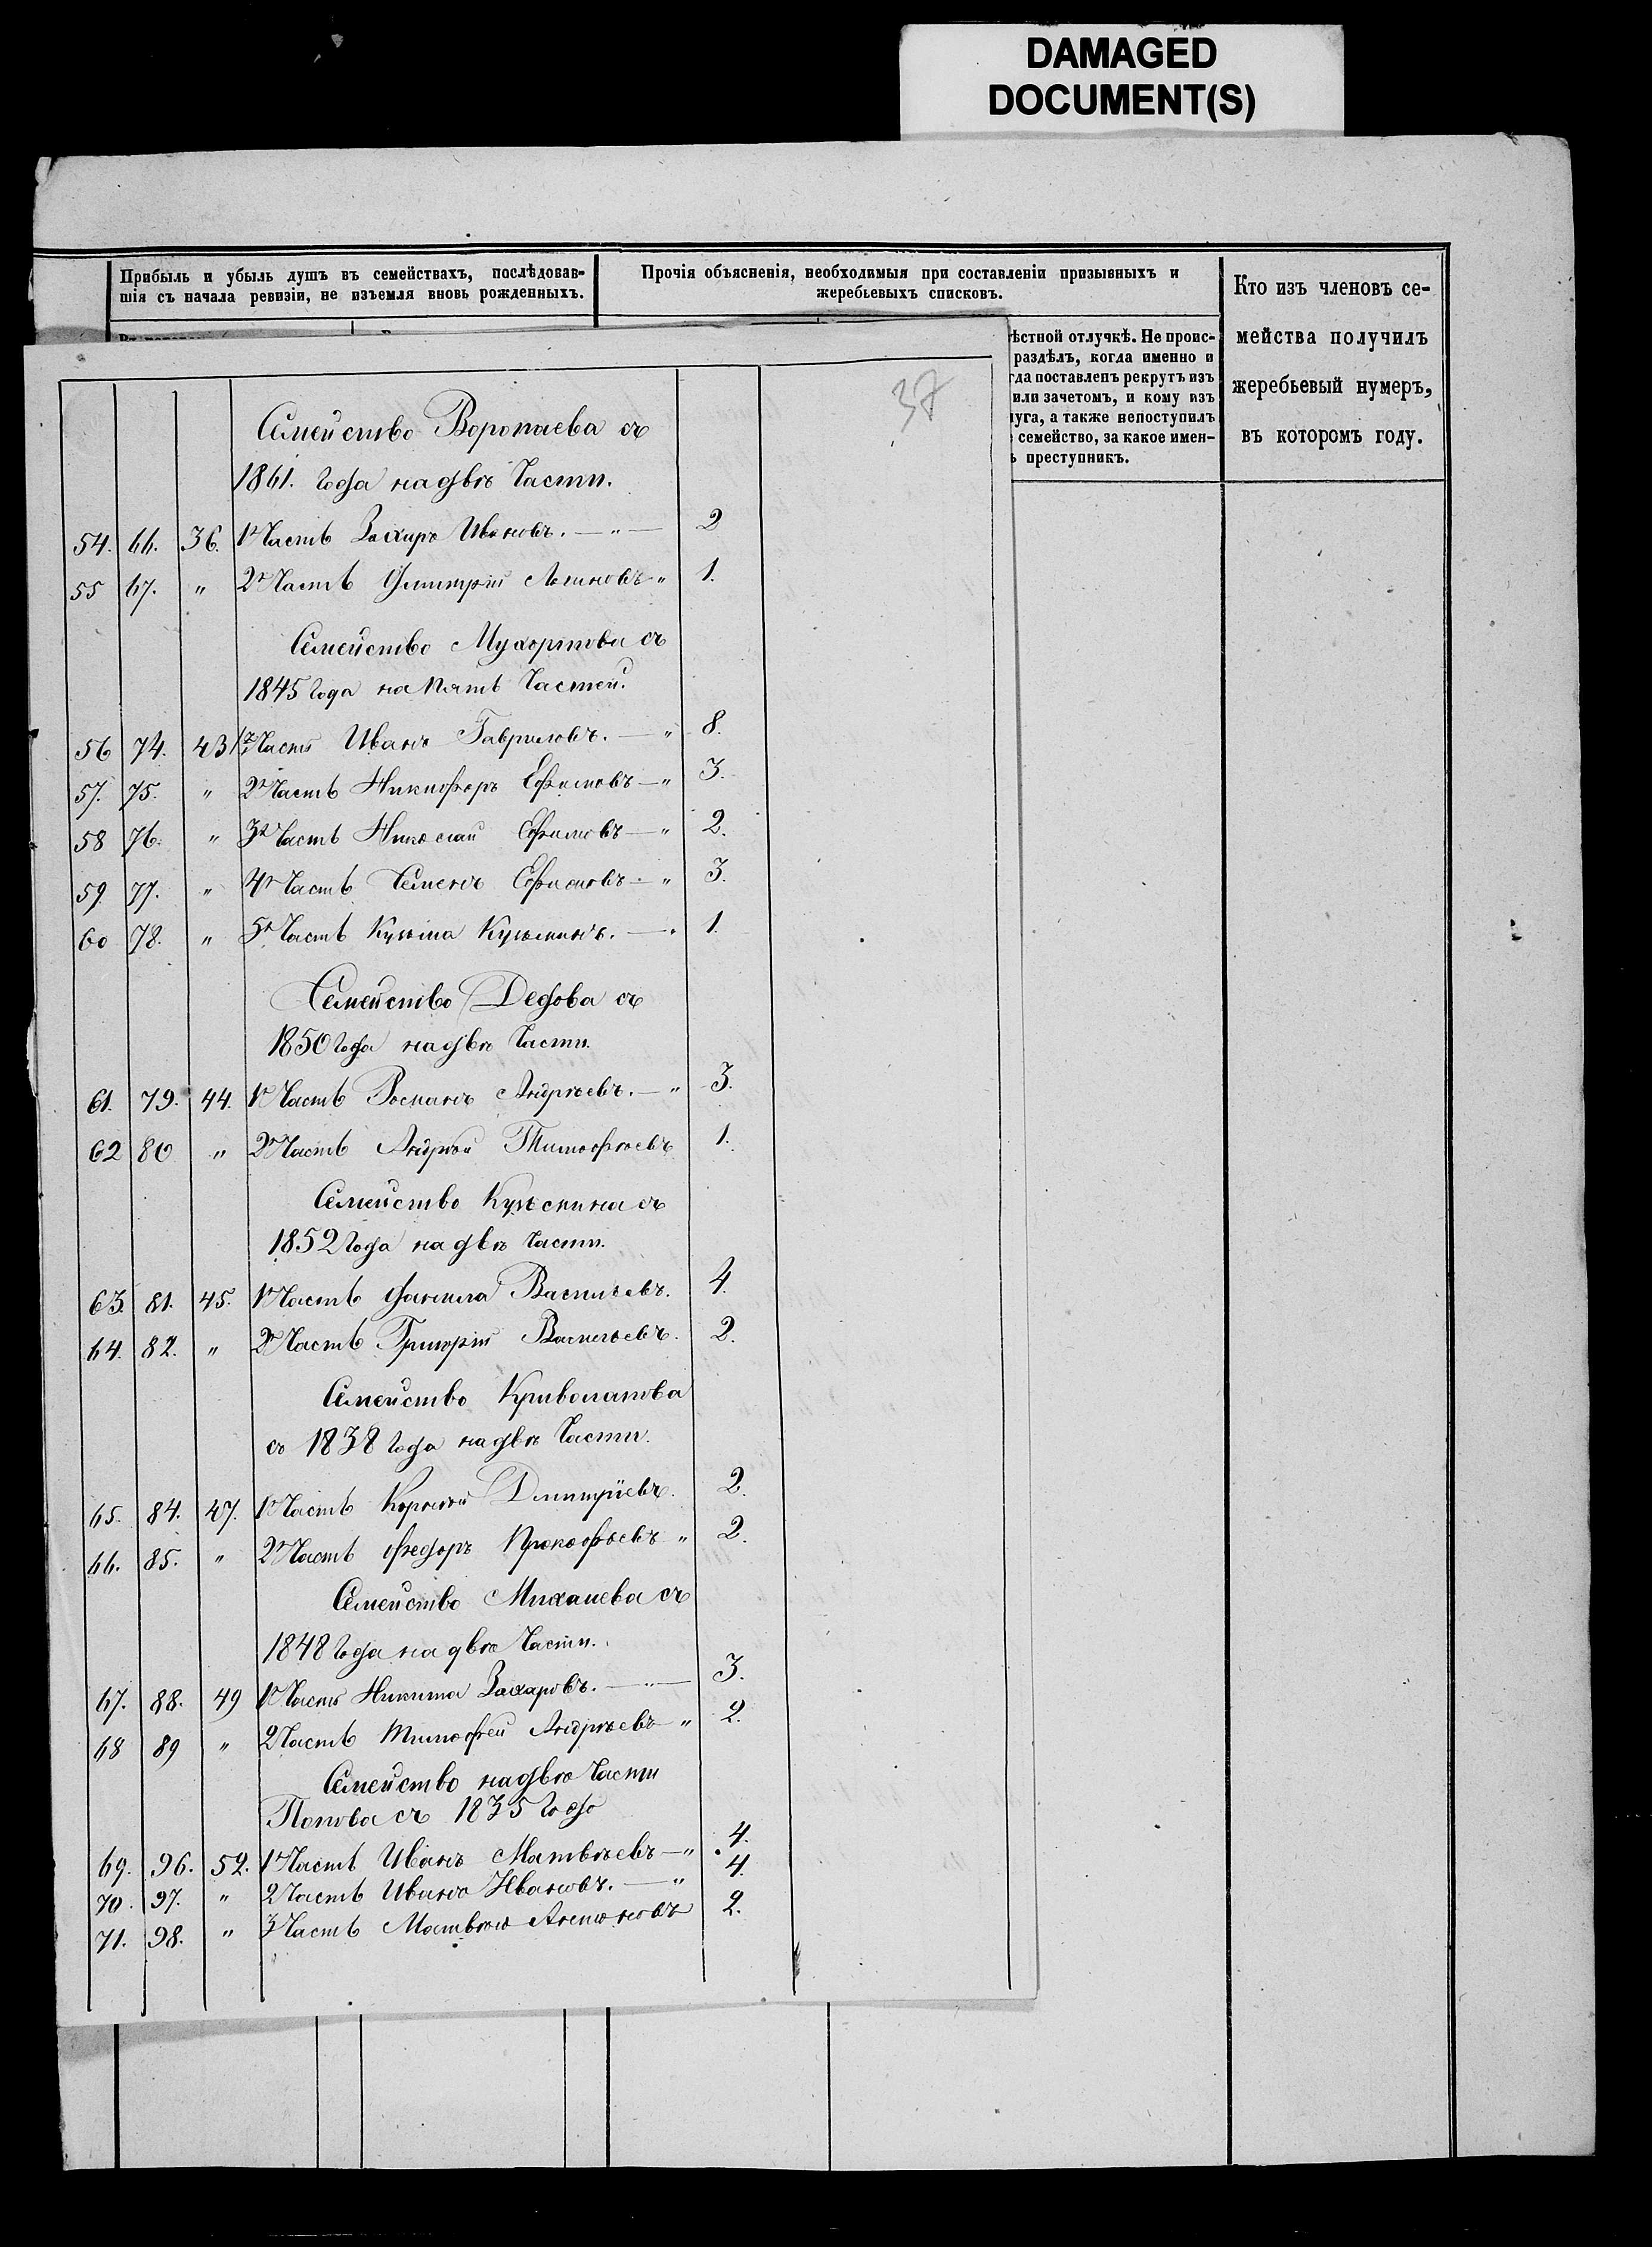 DAMAGED
DOCUMENT(S)
Прибыль и убыль душъ въ семействахъ, послѣдовав-
шія съ начала ревизіи, не изъемля вновь рожденныхъ.
Прочія объясненія, необходимыя при составленіи призывныхъ и
жеребьевыхъ списковъ.
Кто изъ членовъ се-
мейства получилъ
жеребьевый нумеръ,
въ которомъ году.
ѣстной отлучкѣ. Не проис-
раздѣлъ, когда именно и
гда поставленъ рекрутъ изъ
или зачетомъ, и кому изъ
луга, а также непоступилъ
семейство, за какое имен-
ь преступникъ.
37
Семейство Воропаева съ
1861. Года на двѣ Части.
54. 66. 36. 1я Часть Захаръ Ивановъ. — „ — 2
55 67. „ 2я Часть Дмитрій Логиновъ „ 1.
Семейство Мухортова съ
1845 Года на Пять Частей.
56 74. 43 1я Часть Иванъ Гавриловъ. — „ 8.
57. 75. „ 2я Часть Никифоръ Ефимовъ — „ 3.
58 76. „ 3я Часть Николай Ефимовъ — „ 2.
59 77. „ 4я Часть Семенъ Ефимовъ — „ 3.
60 78. „ 5я Часть Кузьма Кузьминъ. — „ 1.
Семейство Дедова съ
1850 Года на двѣ Части.
61. 79. 44. 1я Часть Романъ Андрѣевъ. — „ 3.
62 80 „ 2я Часть Андрѣй Тимофѣевъ 1.
Семейство Кузьмина съ
1852 Года на двѣ Части.
63. 81. 45. 1я Часть Данила Васильевъ. 4.
64. 82. „ 2я Часть Григорій Васильевъ. 2.
Семейство Кривопатова
съ 1838 Года на двѣ Части.
65. 84. 47. 1я Часть Корнѣй Дмитріевъ. 2.
66. 85. „ 2я Часть Федоръ Прокофьевъ „ 2.
Семейство Михалева съ
1848 Года на двѣ Части.
67. 88. 49 1я Часть Никита Захаровъ. — „ — 3.
68 89 „ 2 Часть Тимофей Андрѣевъ „ 2.
Семейство на двѣ Части
Попова съ 1835 Года
69. 96. 52. 1я Часть Иванъ Матвѣевъ — „ 4.
70. 97. „ 2 Часть Иванъ Ивановъ. — „ 4.
71. 98. „ 3 Часть Матвѣй Антоновъ 2.